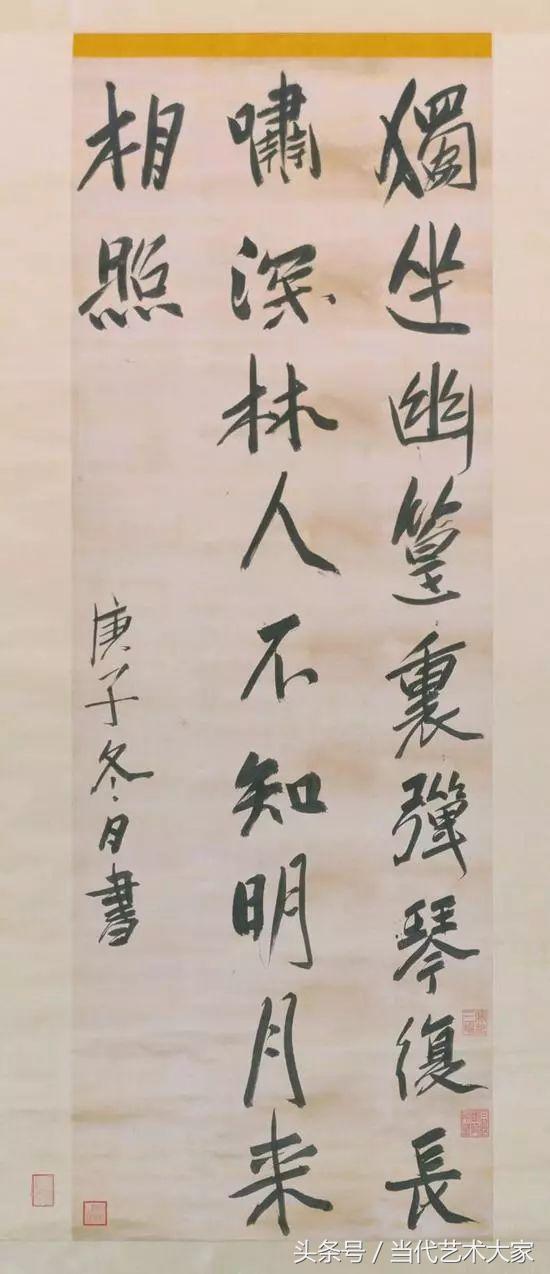 獨坐幽篁裏彈琴復長
嘯深林人不知明月来
相照
庚子冬月書
头条号／当代艺术大家